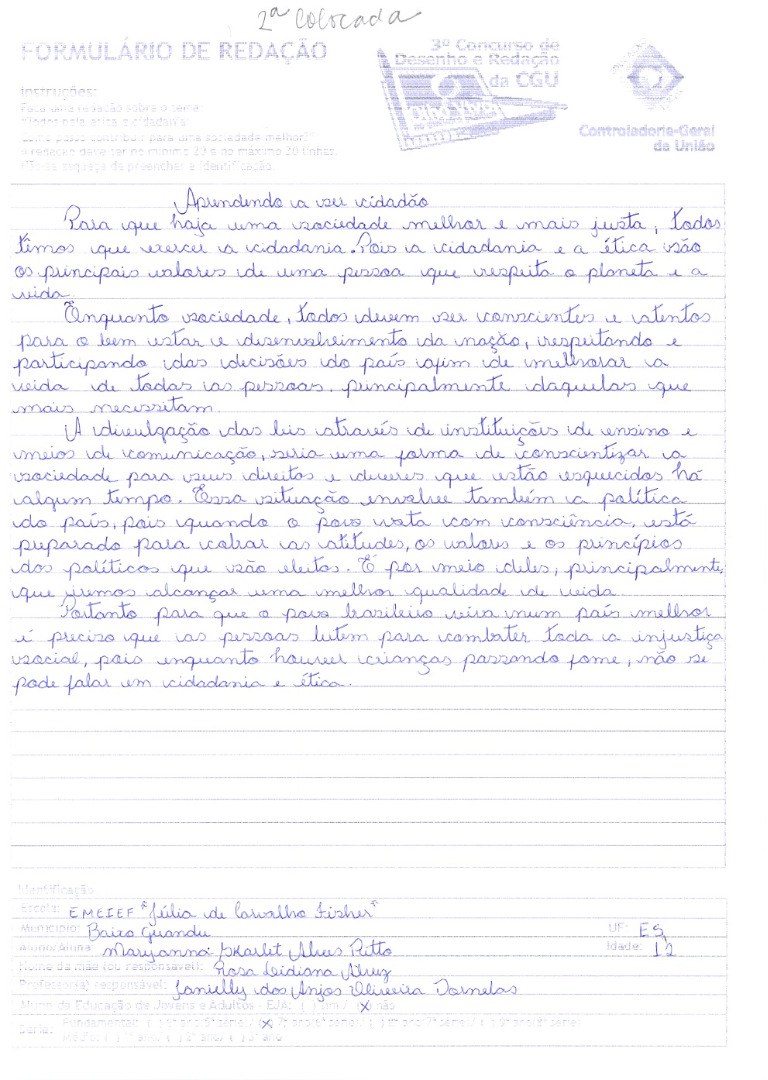 2ª colocada
FORMULÁRIO DE REDAÇÃO
3º Concurso de
Desenho e Redação
da CGU
Instruções:
Faça uma redação sobre o tema:
Controladoria-Geral
da União
A redação deve ter no mínimo 20 e no máximo 30 linhas.
Não se esqueça de preencher a identificação.
Aprendendo a ser cidadão
Para que haja uma sociedade melhor e mais justa, todos
temos que exercer a cidadania. Pois a cidadania e a ética são
os principais valores de uma pessoa que respeita o planeta e a
vida.
Enquanto sociedade, todos devem ser conscientes e atentos
para o bem estar e desenvolvimento da nação, respeitando e
participando das decisões do país afim de melhorar a
vida de todas as pessoas, principalmente daquelas que
mais necessitam.
A divulgação das leis através de instituições de ensino e
meios de comunicação, seria uma forma de conscientizar a
sociedade para seus direitos e deveres que estão esquecidos há
algum tempo. Essa situação envolve também a política
do país, pois quando o povo vota com consciência, está
preparado para cobrar as atitudes, os valores e os princípios
dos políticos que são eleitos. É por meio deles, principalmente,
que iremos alcançar uma melhor qualidade de vida.
Portanto para que o povo brasileiro viva num país melhor
é preciso que as pessoas lutem para combater toda a injustiça
social, pois enquanto houver crianças passando fome, não se
pode falar em cidadania e ética.
Identificação
Escola: EMEIEF "Júlia de Carvalho Fisher"
Município: Baixo Guandu UF: ES
Aluno/Aluna: Maryanna Skarlet Alves Ritto Idade: 12
Nome da mãe (ou responsável): Rosa Lidiana Alves
Professor(a) responsável: Janielly dos Anjos Oliveira Dornelas
Aluno da Educação de Jovens e Adultos - EJA: ( ) sim / (X) não
Série: